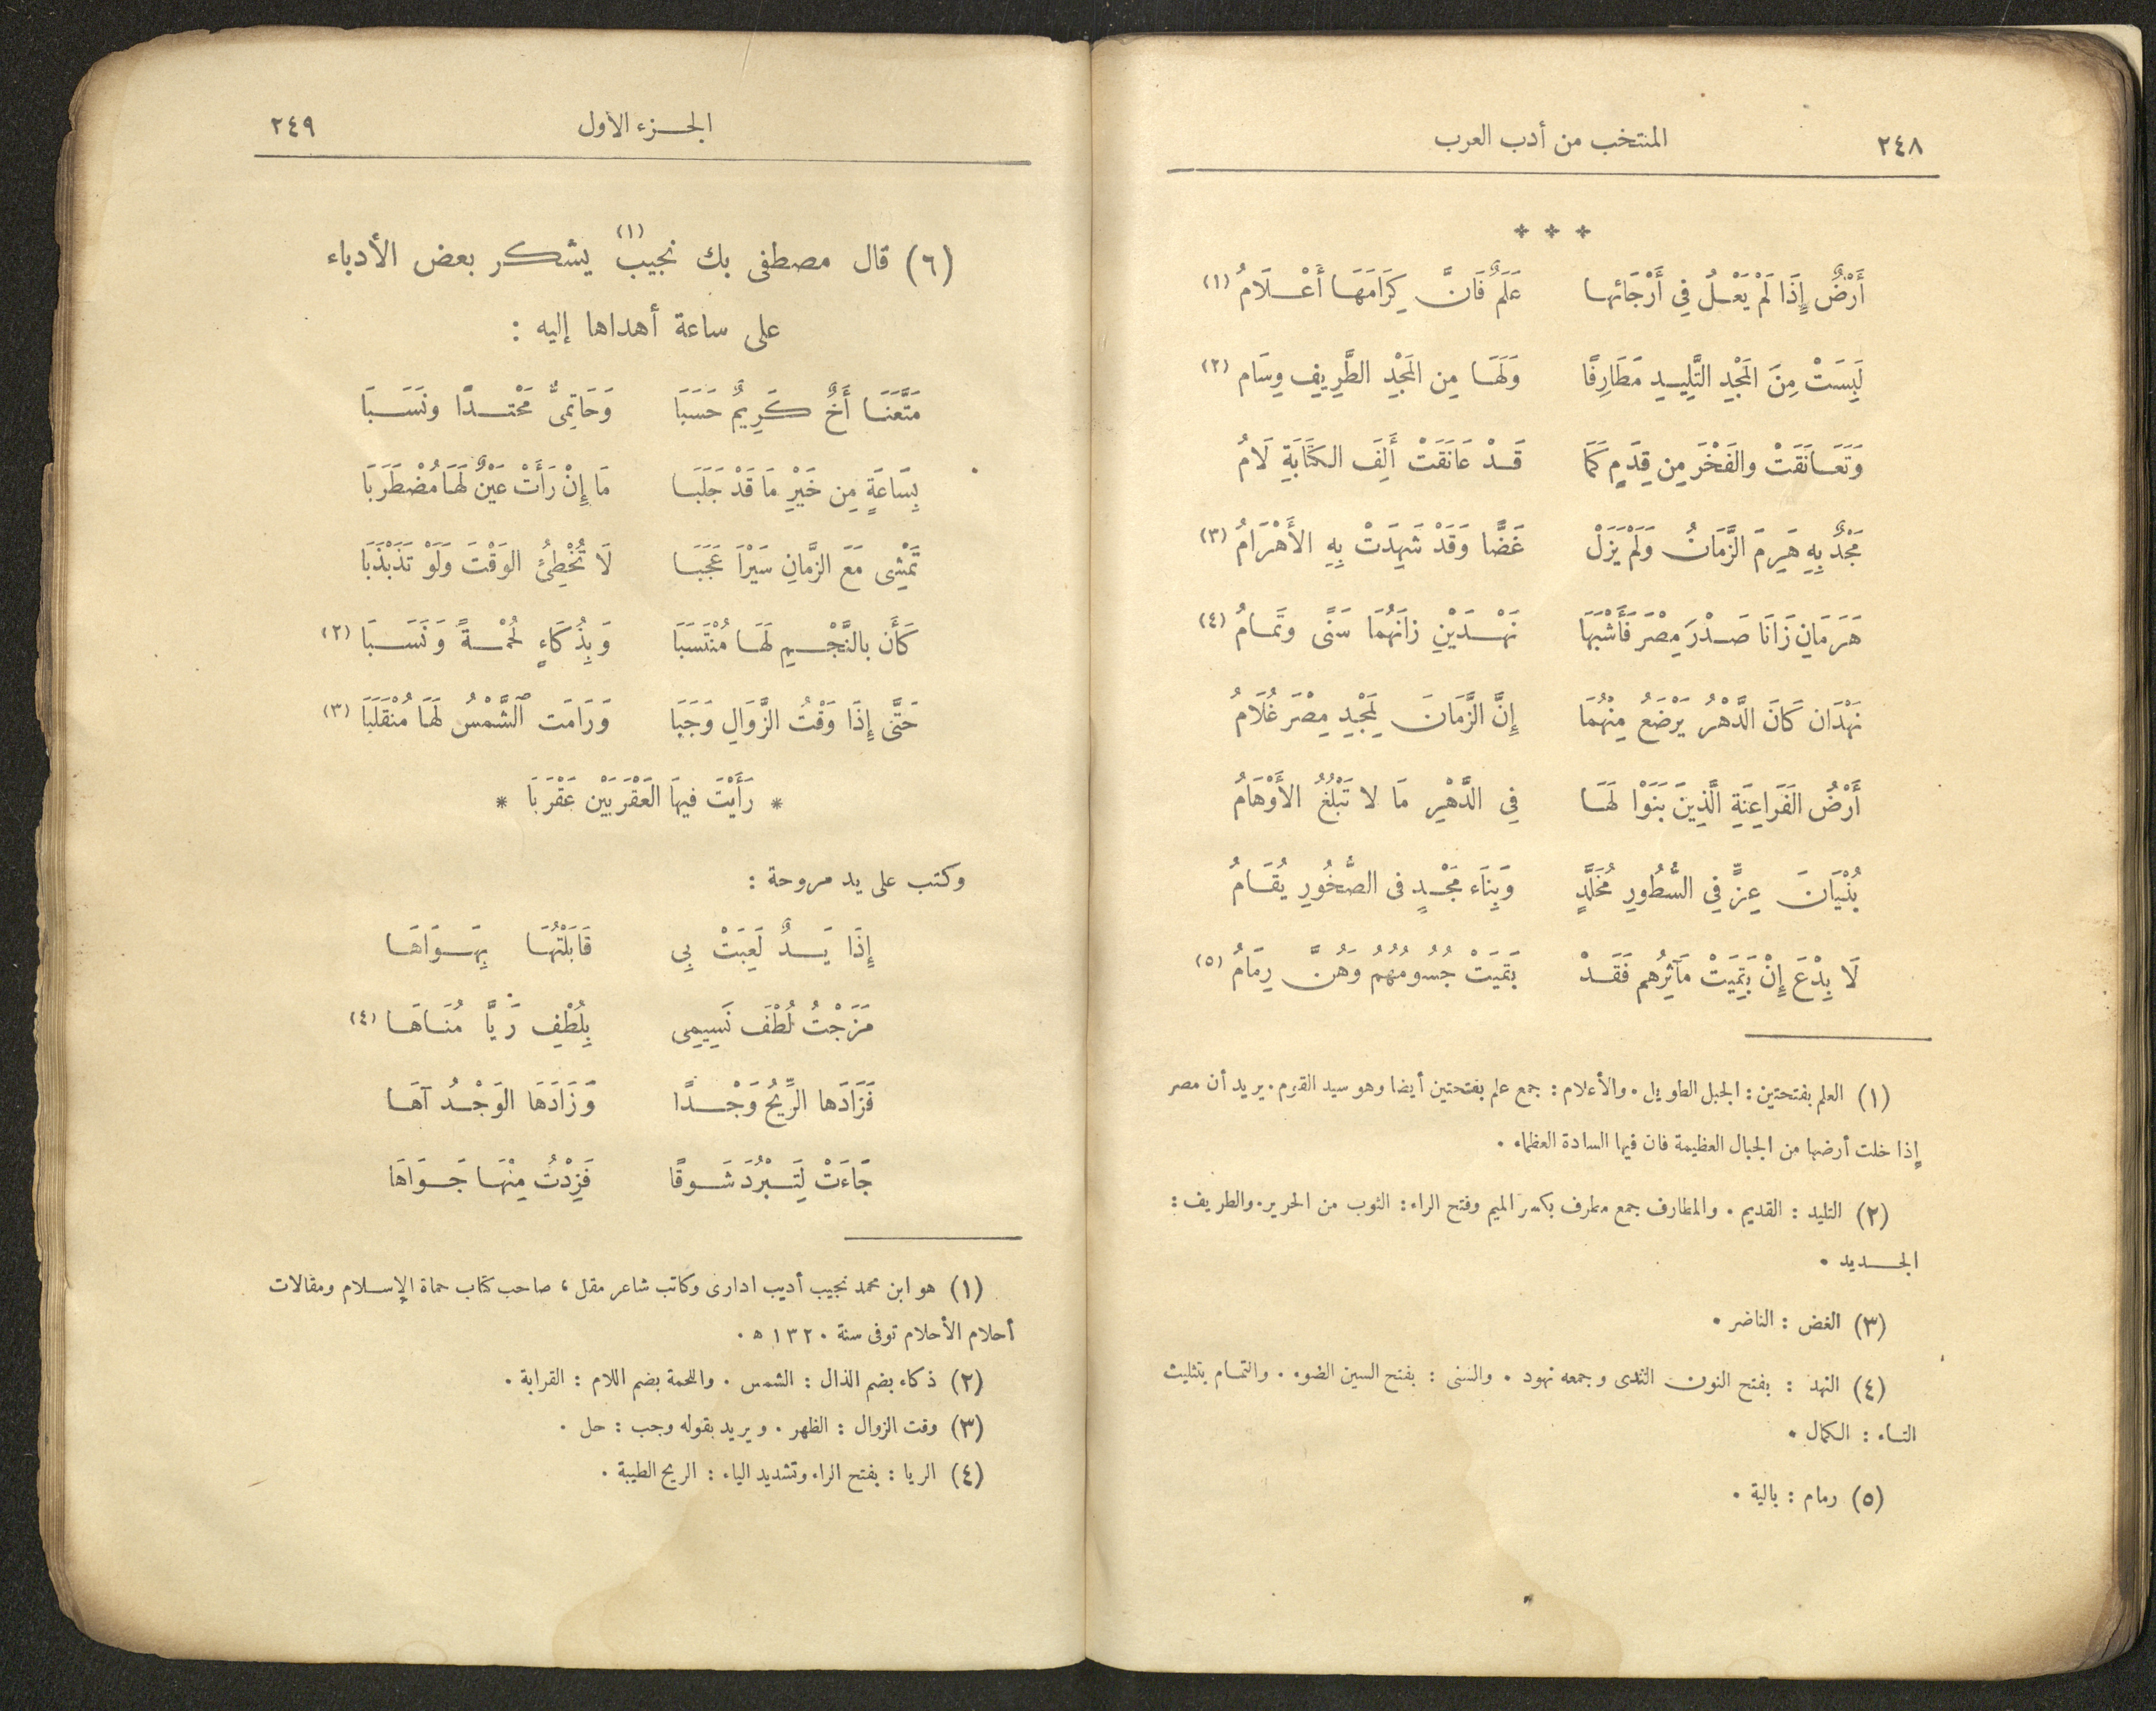 ٢٤٨
المنتخب من أدب العرب
* * *
أَرْضٌ إِذَا لَمْ يَعْلُ فِي أَرْجَائها عَلَمٌ فَانَّ كِرَامَهَا أَعْلَامُ (١)
لَبِسَتْ مِنَ المَجْدِ التَّلِيدِ مَطَارِفًا وَلَهَا مِن المَجْدِ الطَّرِيفِ وِسَام (٢)
وَتَعَانَقَتْ والفَخْرَ مِن قِدَمٍ كَمَا قَدْ عَانَقَتْ أَلِفَ الكَتَابَةِ لَامُ
مَجْدٌ بِهِ هَرِمَ الزَّمَانُ وَلَمْ يَزَلْ غَضًّا وَقَدْ شَهِدَتْ بِهِ الأَهْرَامُ (٣)
هَرَمَانِ زَانَا صَدْرَ مِصْرَ فَأَشْبَهَا نَهْدَيْنِ زانَهُمَا سَنًى وتَمامُ (٤)
نَهْدَان كَانَ الدَّهْرُ يَرْضَعُ مِنْهُمَا إِنَّ الزَّمَانَ لِمَجْدِ مِصْرَ غُلَامُ
أَرْضُ الفَرَاعِنَةِ الَّذِينَ بَنَوْا لَهَا فِي الدَّهْرِ مَا لا تَبْلُغُ الأَوْهَامُ
بُنْيَانَ عِزٍّ فِي السُّطُورِ مُخَلَّدٍ وَبِنَاء مَجْدٍ فى الصُّخُورِ يُقَامُ
لَا بِدْعَ إِنْ بَقِيَتْ مَآثِرُهم فَقَدْ بَقِيَتْ جُسُومُهُمُ وَهُنَّ رِمَامُ (٥)
(١) العلم بفتحتين : الجبل الطويل . والأعلام : جمع علم بفتحتين أيضا وهو سيد القوم . يريد أن مصر
إذا خلت أرضها من الجبال العظيمة فان فيها السادة العظماء .
(٢) التليد : القديم . والمطارف جمع مطرف بكسر الميم وفتح الراء : الثوب من الحرير . والطريف :
الجديد .
(٣) الغض : الناضر .
(٤) النهد : بفتح النون الثدى وجمعه نهود . والسنى : بفتح السين الضوء . والتمام بتثليث
التاء : الكمال .
(٥) رمام : بالية .
الجزء الأول
٢٤٩
(٦) قال مصطفى بك نجيب (١) يشكر بعض الأدباء
على ساعة أهداها إليه :
مَتَّعَنَا أَخٌ كَرِيمٌ حَسَبَا وَحَاتِمِىٌّ مَحْتدًا ونَسَبَا
بِسَاعَةٍ مِن خَيْرِ مَا قَدْ جَلَبَا مَا إِنْ رَأَتْ عَيْنٌ لَهَا مُضْطَرَبَا
تَمْشِى مَعَ الزَّمانِ سَيْرًا عَجَبَا لَا تُخْطِئُ الوَقْتَ وَلَوْ تَذَبْذَبَا
كَأَن بالنَّجْمِ لَهَا مُنْتَسَبَا وَبِذُكَاءٍ لُحْمَةً وَنَسَبَا (٢)
حَتَّى إِذَا وَقْتُ الزَّوَالِ وَجَبَا وَرَامَت ٱلشَّمْسُ لَهَا مُنْقَلَبَا (٣)
* رَأَيْتَ فيهَا العَقْرَبَيْن عَقْرَبَا *
وكتب على يد مروحة :
إِذَا يَدٌ لَعِبَتْ بِى قَابَلْتُهَا بِهَوَاهَا
مَزَجْتُ لُطْفَ نَسِيمِى بِلُطْفِ رَيَّا مُنَاهَا (٤)
فَزَادَها الرِّيحُ وَجْدًا وَزَادَهَا الوَجْدُ آهَا
جَاءَتْ لِتَبْرُدَ شَوقًا فَزِدْتُ مِنْهَا جَوَاهَا
(١) هو ابن محمد نجيب أديب ادارى وكاتب شاعر مقل ، صاحب كتاب حماة الإسلام ومقالات
أحلام الأحلام توفى سنة ١٣٢٠ هـ .
(٢) ذكاء بضم الذال : الشمس . واللحمة بضم اللام : القرابة .
(٣) وقت الزوال : الظهر . ويريد بقوله وجب : حل .
(٤) الريا : بفتح الراء وتشديد الياء : الريح الطيبة .